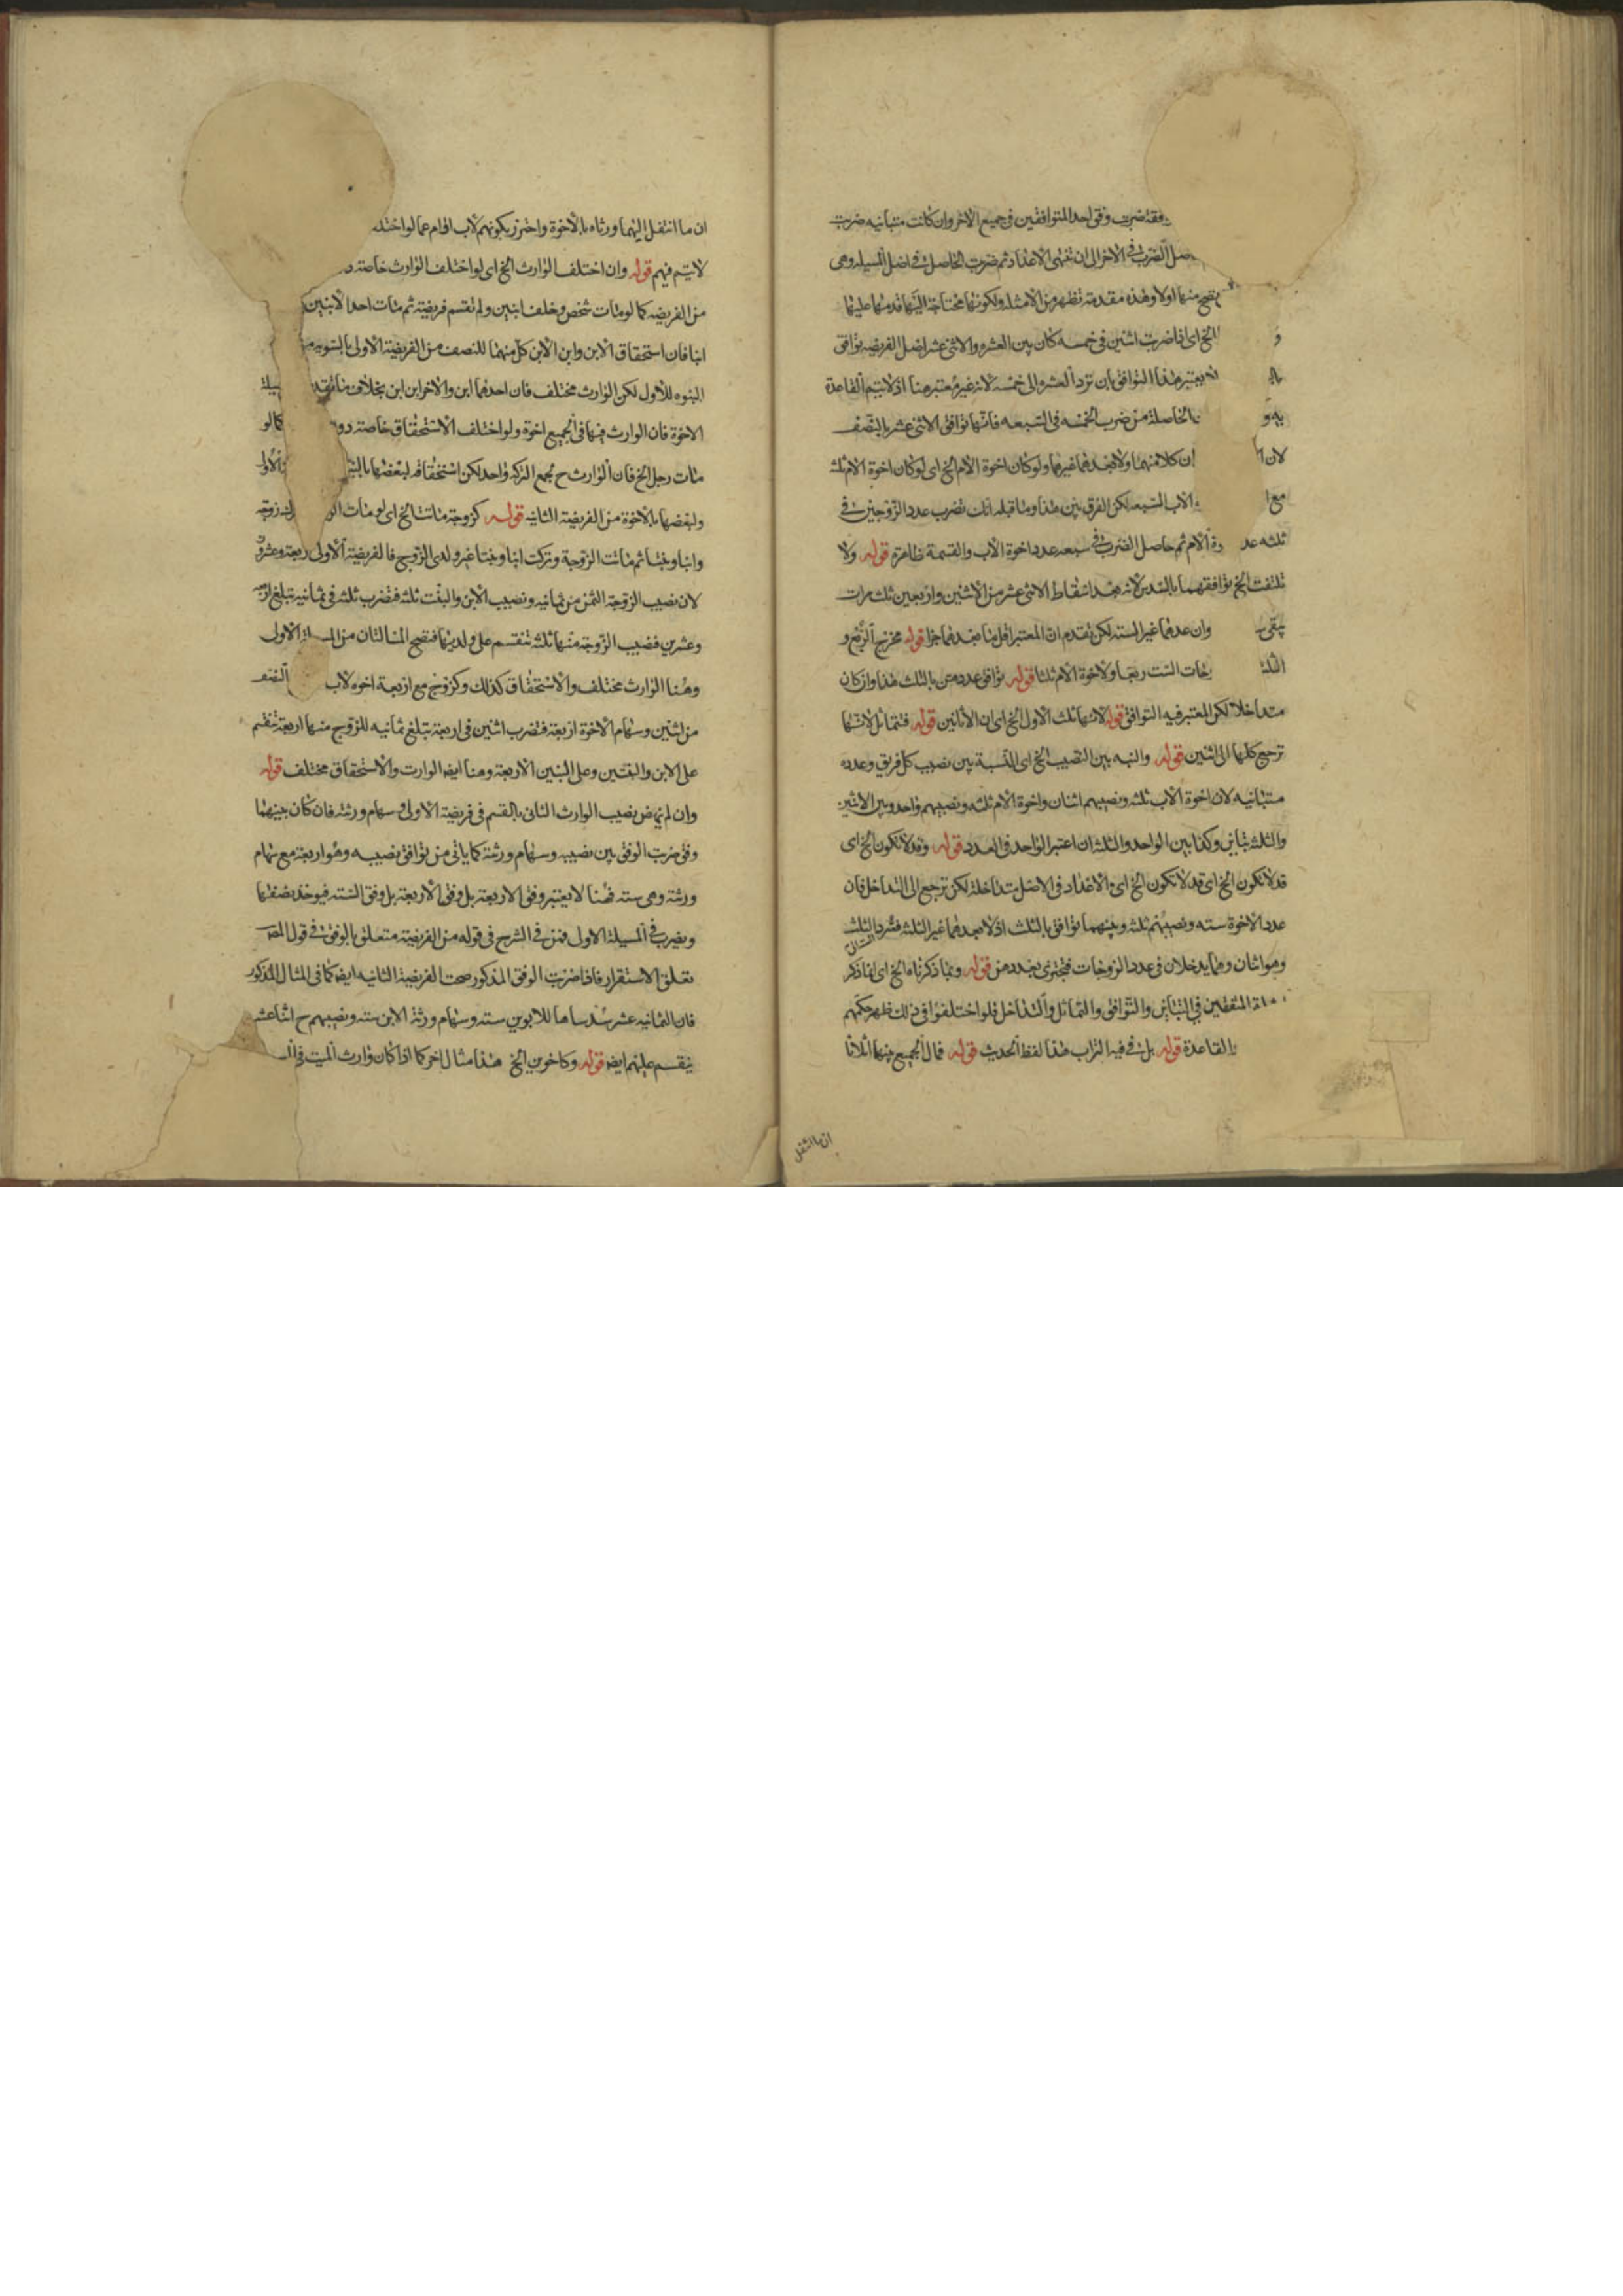 فقة ضربت وفق احد المتوافقين فى جميع الاخر وان كانت متباينه ضربت
صل الضرب فى الاخر الى ان تنتهى الاعداد ثم ضربت الحاصل فى اصل المسيله وهى
تصح منها اولا وهذه مقدمة تظهر من الامثله ولكونها محتاجة اليها قدمها عليها
و الخ اى اذا ضربت اثنين فى خمسه كان بين العشره والاثنى عشر اصل الفريضه توافق
يعتبر هذا التوافق بان ترد العشره الى خمسه لانه غير معتبر هنا اذ لا يتم القاعدة
الحاصلة من ضرب الخمسه فى السبعه فانها توافق الاثنى عشر بالنصف
لان ان كلا منهما ولا يعدهما غيرهما ولو كان اخوة الام الخ اى لو كان اخوة الام ثلث
مع الاب السبعه لكن الفرق بين هذا وما قبله انك تضرب عدد الزوجين فى
ثلثه عد وة الام ثم حاصل الضرب فى سبعه عدد اخوة الاب والقسمة ظاهرة قوله ولا
تلتفت الخ توافقهما بالسدس لانه بعد اسقاط الاثنى عشر من الاثنين واربعين ثلث مرات
يبقى وان عدهما غير الستة لكن تقدم ان المعتبر اقل ما يعدهما جزا قوله مخرج الربع و
الثلث جات الست ربعا ولاخوة الام ثلثا قوله توافق عددهن بالثلث هذا وان كان
متداخلا لكن المعتبر فيه التوافق قوله لانها ثلث الاول الخ اى ان الاثنين قوله فتماثل لانها
ترجع كلها الى اثنين قوله والنسبه بين النصيب الخ اى النسبة بين نصيب كل فريق وعدده
متباينه لان اخوة الاب ثلثه ونصيبهم اثنان واخوة الام ثلثه ونصيبهم واحد وبين الاثنين
والثلثه تباين وكذا بين الواحد والثلثه ان اعتبر الواحد فى العدد قوله وقد لا تكون الخ اى
قد لا تكون الخ اى قد لا تكون الخ اى الاعداد فى الاصل متداخلة لكن ترجع الى التداخل فان
عدد الاخوة سته ونصيبهم ثلثه وبينهما توافق بالثلث اذ لا يعدهما غير الثلثه فترد الثلث
وهو اثنان وهما يدخلان فى عدد الزوجات فتجتزى بعددهن قوله وبما ذكرناه الخ اى انما ذكر
المتفقين فى التباين والتوافق والتماثل والتداخل فلو اختلفوا فى ذلك فلهم حكمهم
القاعدة قوله بل فى فيه التراب هذا لفظ الحديث قوله فمال الجميع بينهما اثلاثا
ان ما انتقل
ان ما انتقل اليهما ورثاه بالاخوة واحترز بكونهم لاب اقام عما لو اختلف
لا يتم فيهم قوله وان اختلف الوارث الخ اى لو اختلف الوارث خاصته
من الفريضه كما لو مات شخص وخلف ابنين ولم تقسم فريضته ثم مات احد الابنين
ابنا فان استحقاق الابن وابن الابن كل منهما للنصف من الفريضة الاولى بالسويه
البنوه للاول لكن الوارث مختلف فان احدهما ابن والاخر ابن ابن بخلاف ما تقدم
الاخوة فان الوارث فيها فى الجميع اخوة ولو اختلف الاستحقاق خاصته دون كما لو
مات رجل الخ فان الوارث ح لجمع التركه واحد لكن استحقاقه لبعضها بالبنوة الاولى
ولبعضها بالاخوة من الفريضة الثانيه قوله كزوجة ماتت الخ اى لو مات زوجه
وابنا وبنتا ثم ماتت الزوجة وتركت ابنا وبنتا غير ولدى الزوج فالفريضة الاولى اربعة وعشرون
لان نصيب الزوجة الثمن من ثمانيه ونصيب الابن والبنت ثلثه فتضرب ثلثه فى ثمانيه تبلغ اربعه
وعشرين فنصيب الزوجة منها ثلثه تنقسم على ولديها فتصح المسالتان من المسـ الاولى
وهنا الوارث مختلف والاستحقاق كذلك وكزوج مع اربعة اخوه لاب
من اثنين وسهام الاخوة اربعة فتضرب اثنين فى اربعة تبلغ ثمانيه للزوج منها اربعة تنقسم
على الابن والبنتين وعلى البنين الاربعة وهنا ايضا الوارث والاستحقاق مختلف قوله
وان لم ينهض نصيب الوارث الثانى بالقسم فى فريضة الاولى وسهام ورثته فان كان بينهما
وفق ضربت الوفق بين نصيبه وسهام ورثته كما ياتى من توافق نصيبه وهو اربعة مع سهام
ورثته وهى سته فهنا لا يعتبر وفق الاربعة بل وفق الاربعة بل وفق السته فيوخذ نصفها
ويضرب فى المسيلة الاولى فمن فى الشرح فى قوله من الفريضة متعلق بالوفق فى قول المص
تعلق الاستقرار فاذا ضربت الوفق المذكور صحت الفريضة الثانيه ايضا كما فى المثال المذكور
فان الثمانيه عشر سدساها للابوين سته وسهام ورثة الابن سته ونصيبهم ح اثنا عشر
ينقسم عليهم ايضا قوله وكاخوين الخ هذا مثال اخر كما اذا كان وارث الميت